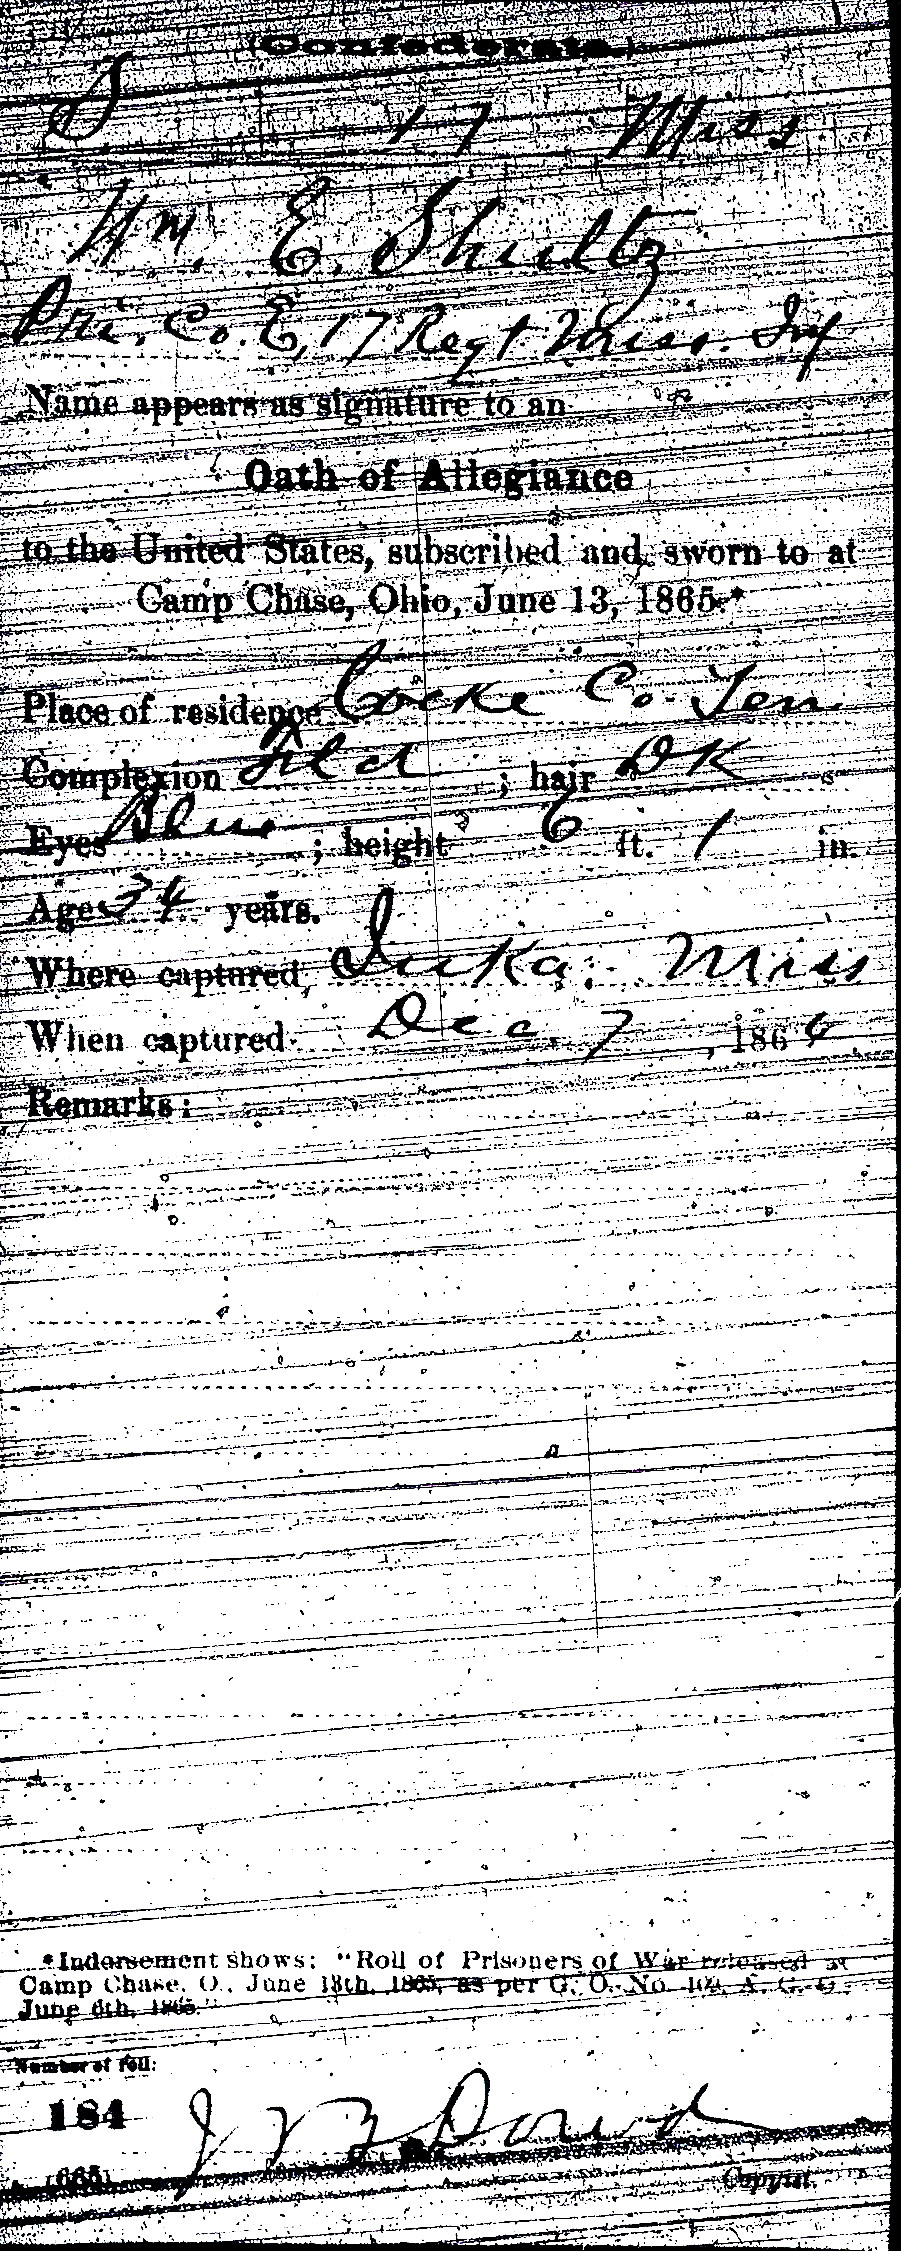 (Confederate.)
S 17 Miss
Wm. E. Shultz
Pri. Co. E, 17 Regt Miss. Inf
Name appears as signature to an
Oath of Allegiance
to the United States, subscribed and sworn to at
Camp Chase, Ohio, June 13, 1865.*
Place of residence Cocke Co. Ten.
Complexion ; hair DK
Eyes Blue ; height 6 ft. 1 in.
Age 34 years.
Where captured, Iuka, Miss
When captured Dec 7, 1864
Remarks:
*Indorsement shows: "Roll of Prisoners of War released at
Camp Chase, O., June 13th, 1865, as per G. O. No. 109, A. G. O.
June 6th, 1865."
Number of roll:
184
J B Dowd
(665) Copyist.